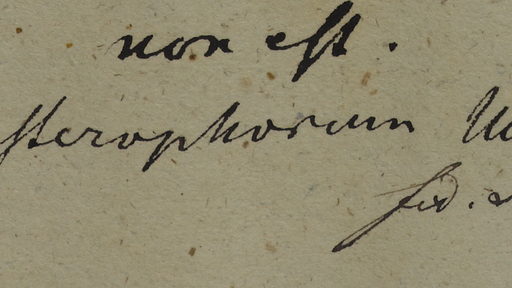 non est.
sterophorum
fid.